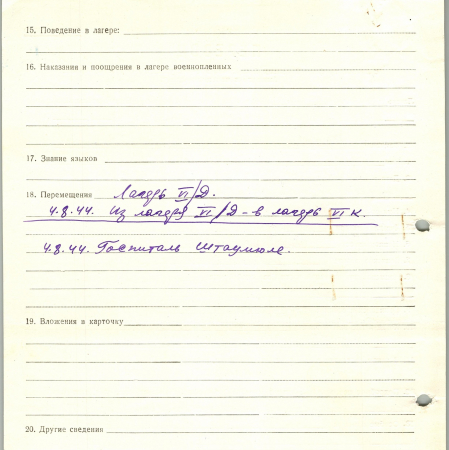 15. Поведение в лагере:
16. Наказания и поощрения в лагере военнопленных
17. Знание языков
18. Перемещения Лагерь VI/Д.
4.8.44. Из лагеря VI/Д - в лагерь VI К.
4.8.44. Госпиталь Штаумюле.
19. Вложения в карточку
20. Другие сведения